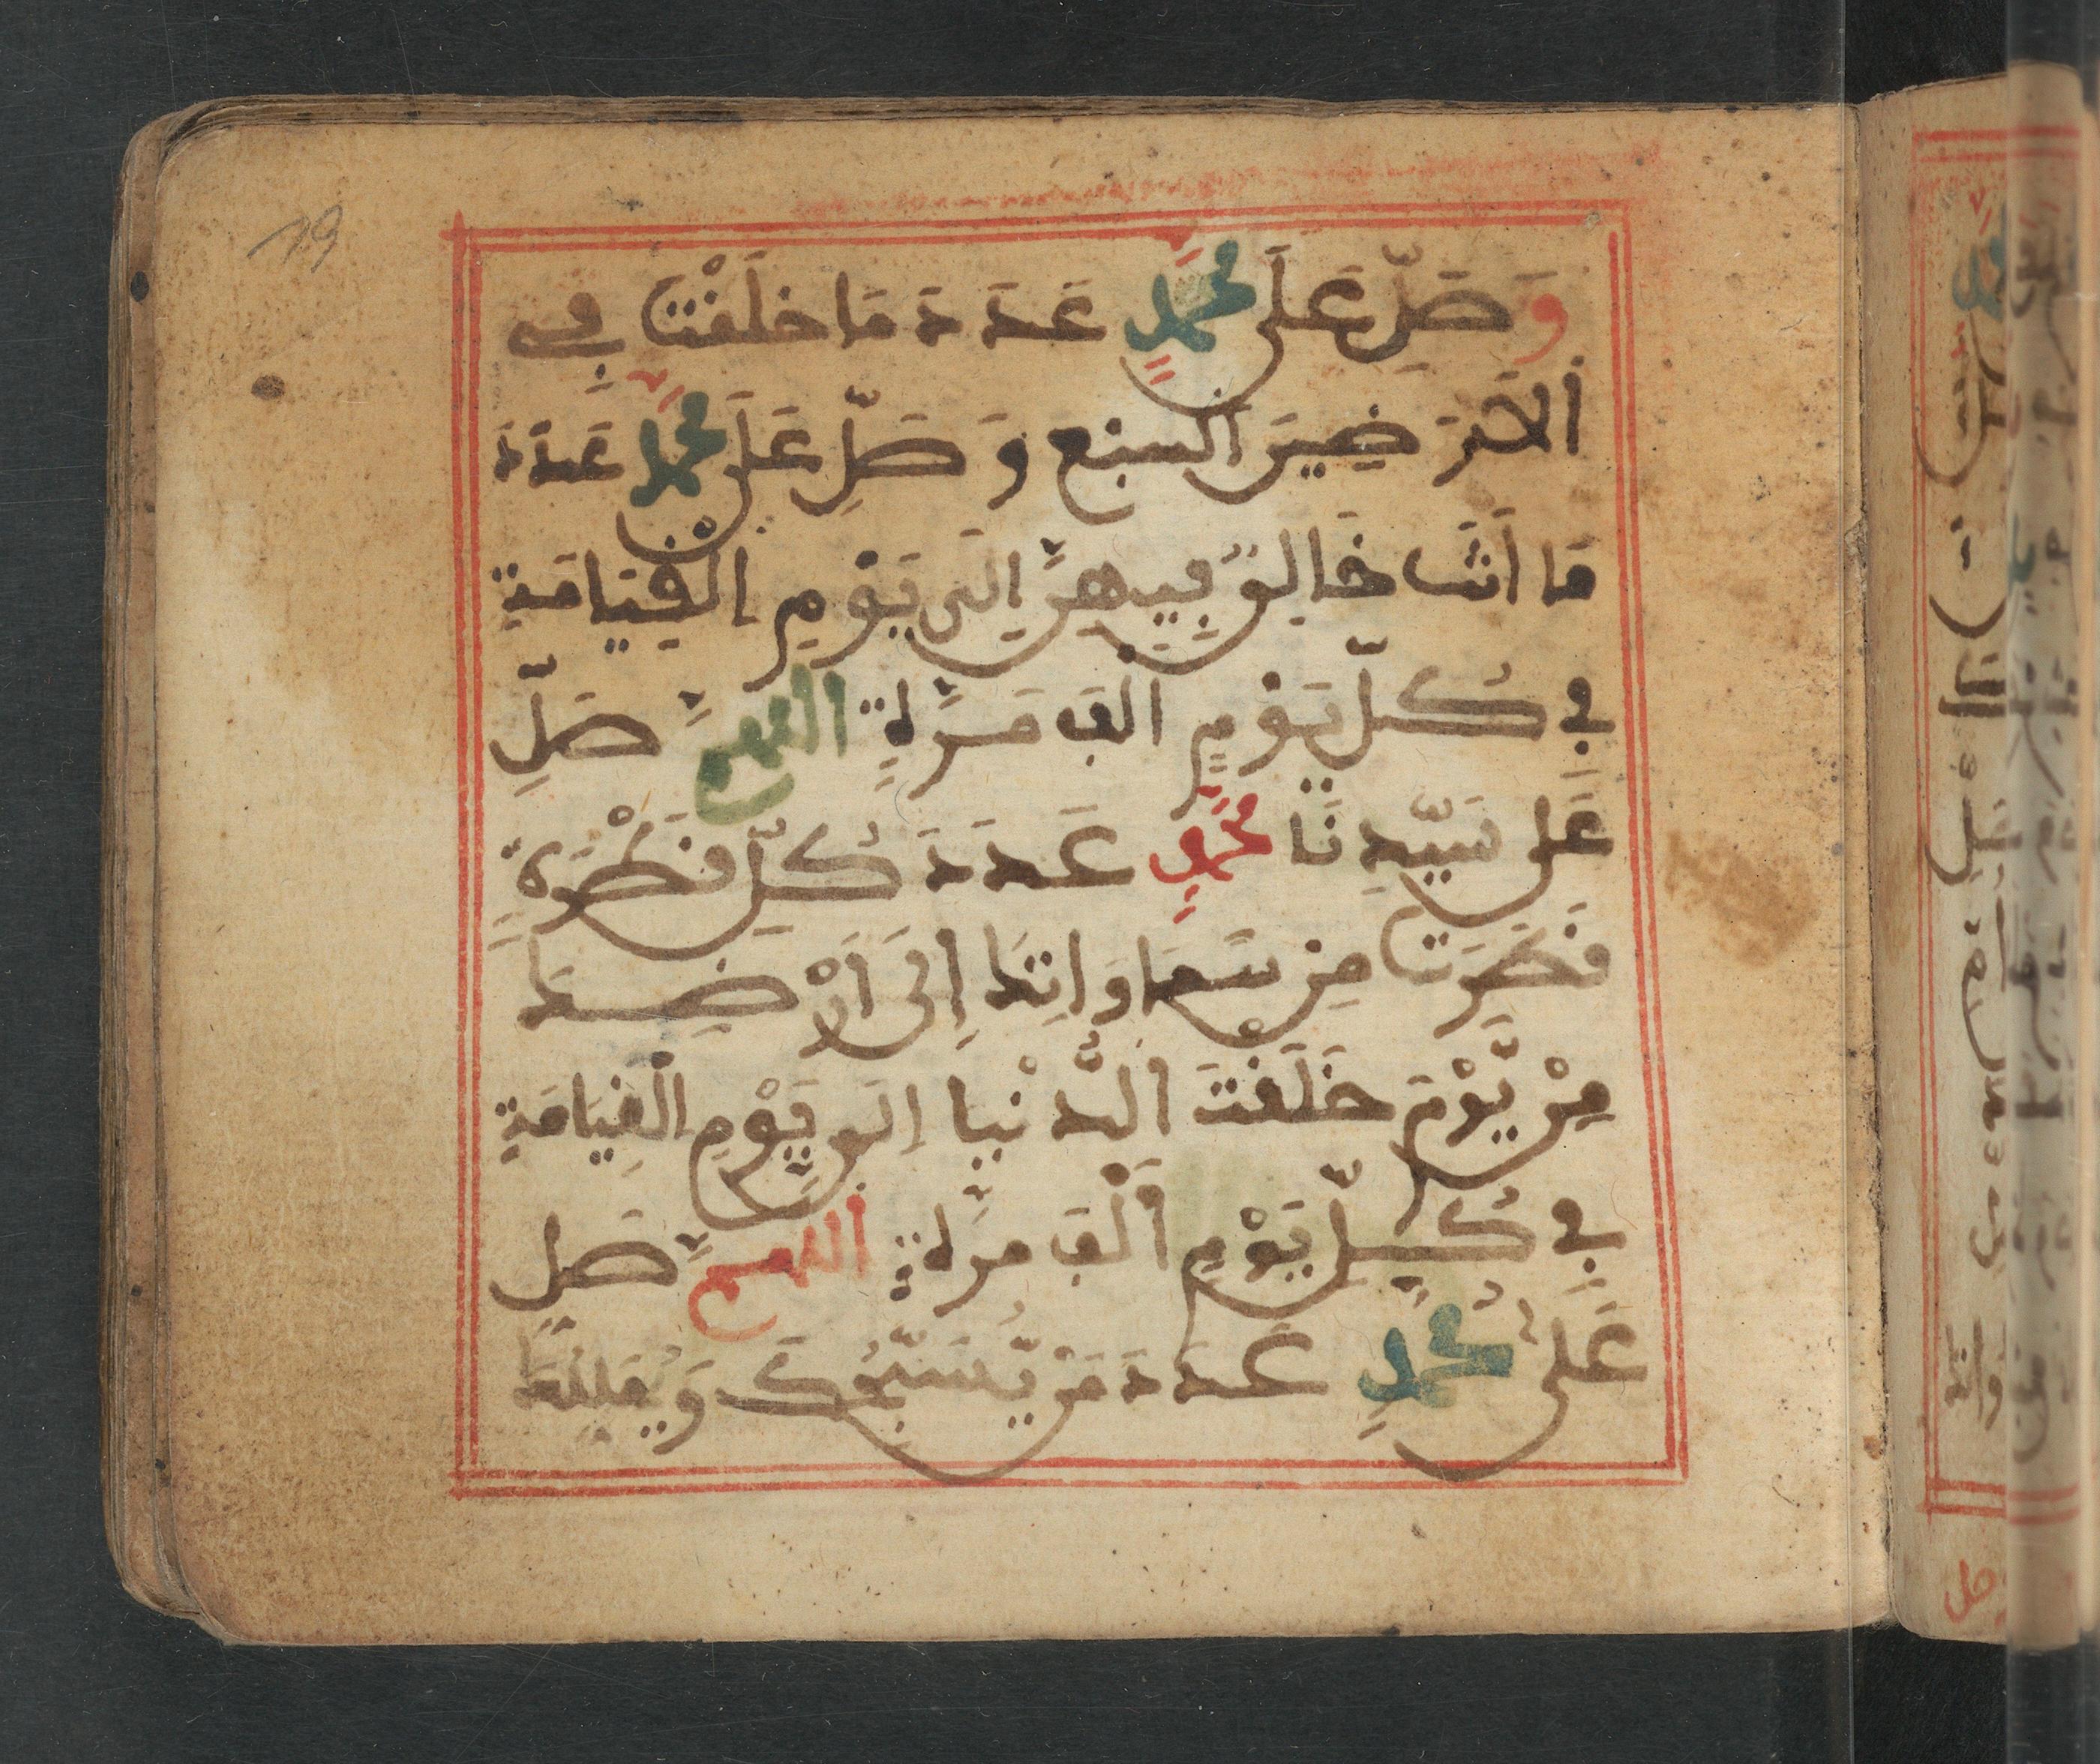 19
وَصَلِّ عَلَى مُحَمَّدٍ عَدَدَ مَا خَلَقْتَ فِي
الْاَرَضِينَ السَّبْعِ وَصَلِّ عَلَى مُحَمَّدٍ عَدَدَ
مَا اَنْتَ خَالِقٌ فِيهِنَّ اِلَى يَوْمِ الْقِيَامَةِ
فِي كُلِّ يَوْمٍ اَلْفَ مَرَّةٍ اللَّهُمَّ صَلِّ
عَلَى سَيِّدِنَا مُحَمَّدٍ عَدَدَ كُلِّ قَطْرَةٍ
قَطَرَتْ مِنْ سَمَاوَاتِكَ اِلَى اَرْضِكَ
مِنْ يَّوْمَ خَلَقْتَ الدُّنْيَا اِلَى يَوْمِ الْقِيَامَةِ
فِي كُلِّ يَوْمٍ اَلْفَ مَرَّةٍ اللَّهُمَّ صَلِّ
عَلَى مُحَمَّدٍ عَدَدَ مَنْ يُّسَبِّحُكَ وَيُهَلِّلُكَ